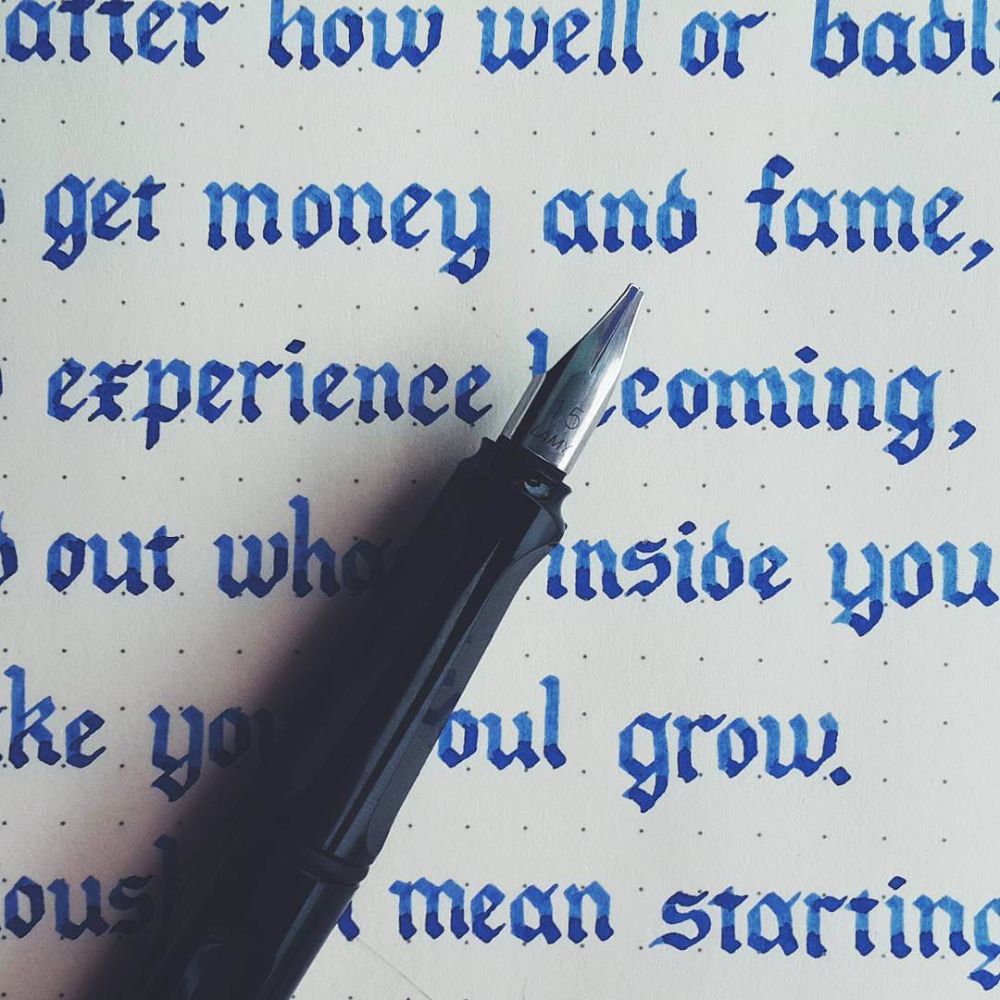 atter how well or badly
get money and fame,
experience becoming,
out what inside you
ke your soul grow.
ously I mean starting
1.5
LAMY